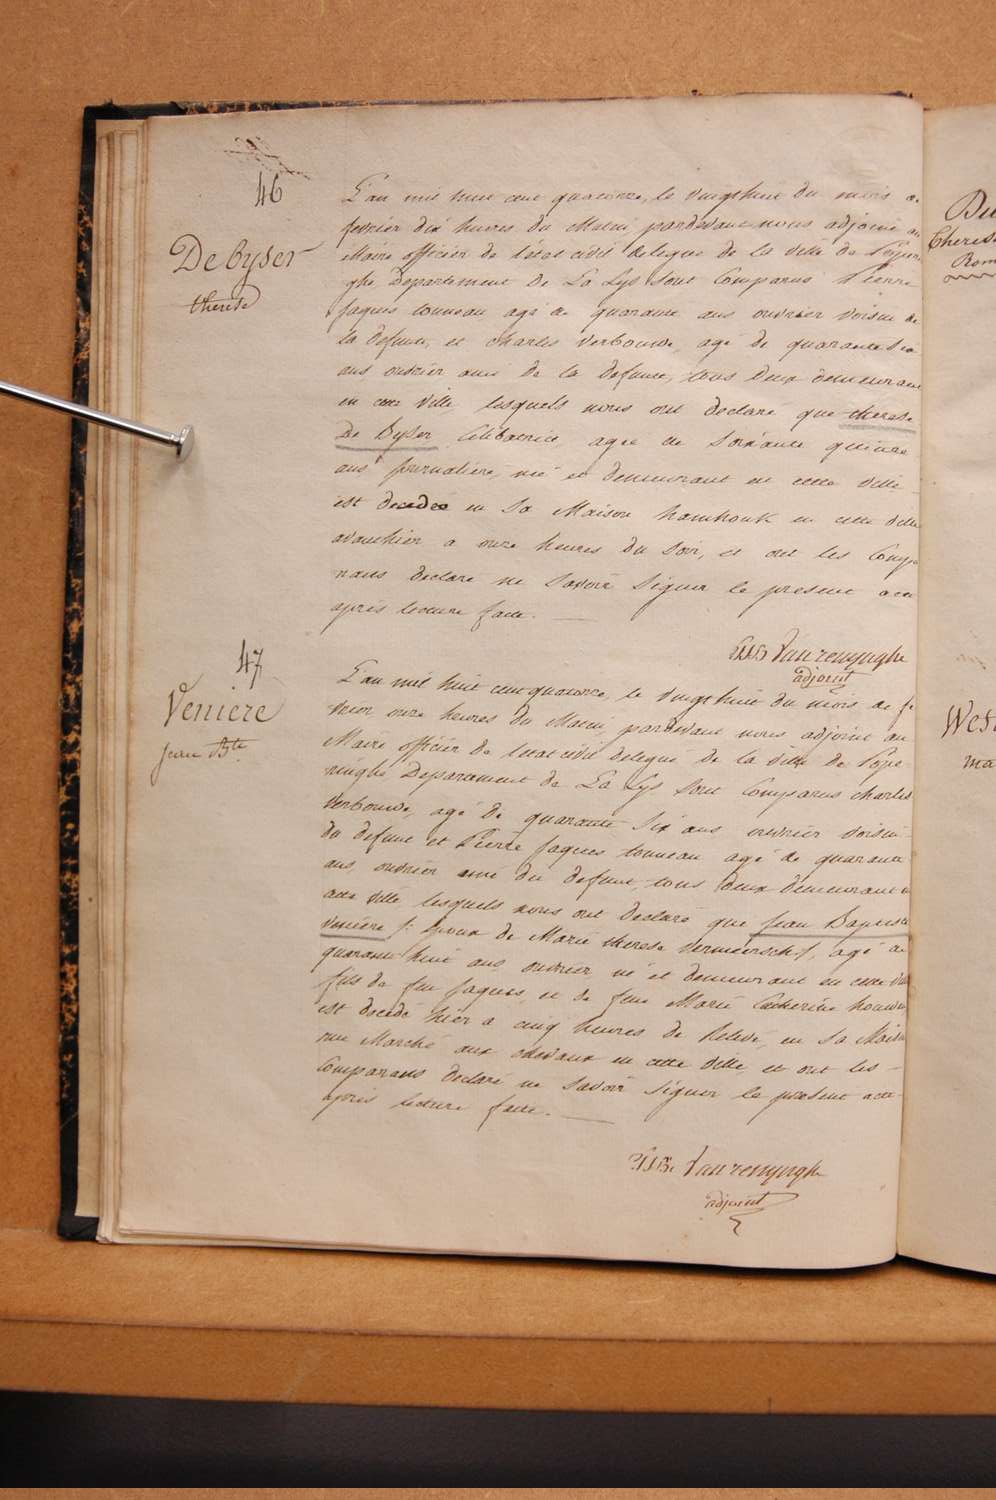 46
De byser
therese
L'an mil huit cent quatorze, le vingthuit du mois de
fevrier dix heures du Matin pardevant nous adjoint au
Maire officier de l'état civil delegué de la ville de Poperin
ghe Departement de La Lys sont Comparus Pierre
Jaques tonneau agé de quarante ans ouvrier voisin de
la defunte, et charles verbouwe, agé de quarante six
ans ouvrier ami de la defunte, tous deux demeurant
en cette ville lesquels nous ont declaré que therese
De Byser Celibatrice, agée de soixante quinze
ans journaliere, née et demeurant en cette ville
est decedée en sa Maison en cette ville
avanthier a onze heures du soir, et ont les Compa
rans declaré ne savoir signer le present acte
après lecture faite.
Vanrenynghe
adjoint
47
Veniere
Jean Bte
L'an mil huit cent quatorze le vingthuit du mois de fe
vrier onze heures du Matin, pardevant nous adjoint au
Maire officier de l'etat civil delegué de la ville de Pope
ringhe Departement de La Lys sont Comparus charles
verbouwe, agé de quarante six ans ouvrier voisin
du defunt et Pierre Jaques tonneau agé de quarante
ans, ouvrier ami du defunt, tous deux demeurant en
cette ville, lesquels nous ont declaré que Jean Baptiste
veniere f: Epoux de Marie therese vermeersch f, agé de
quarante huit ans ouvrier né et demeurant en cette ville
fils de feu Jaques, et de feue Marie Catherine
est decedé hier a cinq heures de Relevé, en sa Maison
rue Marché aux chevaux en cette ville et ont les
Comparans declaré ne savoir signer le present acte
après lecture faite.
Vanrenynghe
adjoint
Therese
Rom
West
ma